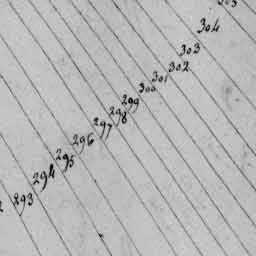 293
294
295
296
297
298
299
300
301
302
303
304